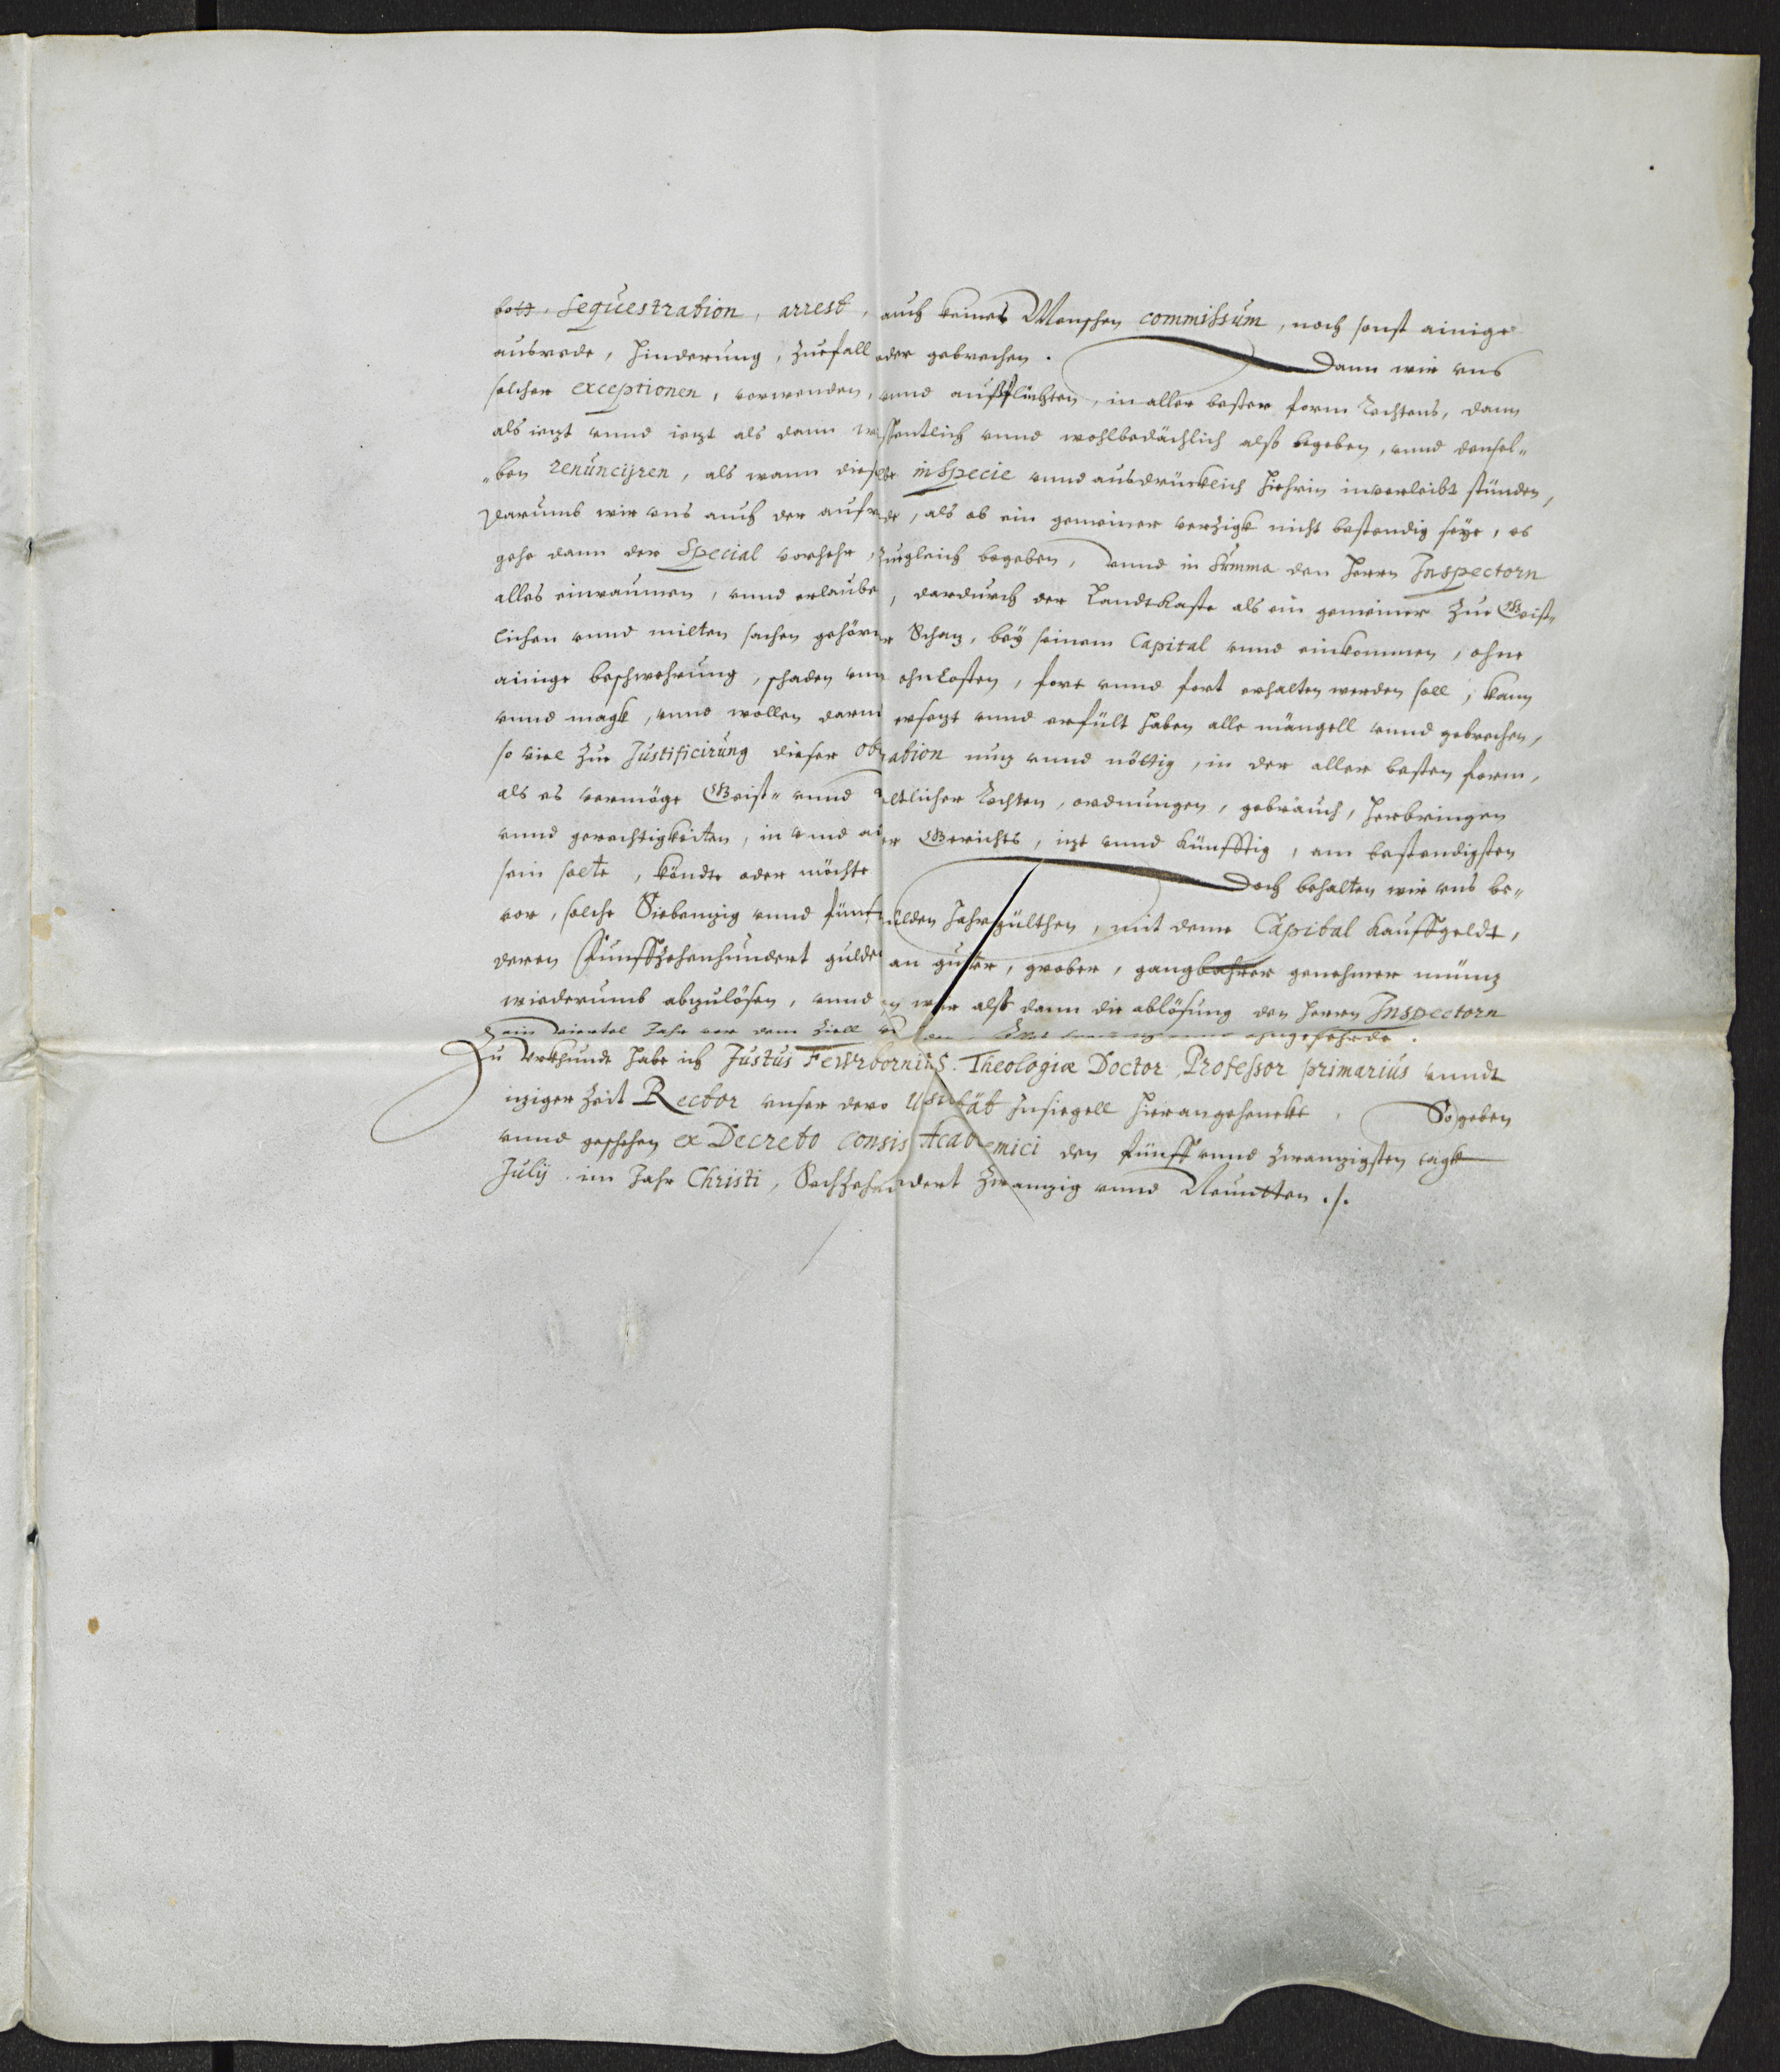 bott, Sequestration, arrest, auch keines Menschen commissum, noch sonst ainige
ausrede, hinderung, zuefall oder gebrechen. Dann wir uns
solcher exceptionen, vorwenden, unnd außflüchten, in aller bester form Rechtens, dann
als ietzt unnd ietzt als dann wissentlich unnd wohlbedächlich alß begeben, unnd densel-
-ben renuncijren, als wann dieselbe in specie unnd ausdrücklich hiehrin inverleibt stünden,
Darumb wir uns auch der aufrede, als ob ein gemeiner verzigk nicht bestendig seye, es
gehe dann der Special vorhehr, zugleich begeben, unnd in Summa den Herrn Inspectorn
alles einraumen, unnd erlauben, dardurch der Landtkaste als ein gemeiner zue Geist-
lichen unnd milten sachen gehöriger Schatz, bey seinem Capital unnd einkommen, ohne
ainige beschwehrung, schaden unnd ohnkosten, fort unnd fort erhalten werden soll, kann
unnd magk, unnd wollen darmit ersetzt unnd erfült haben alle mängell unnd gebrechen,
so viel zue Justificirung dieser nutz unnd nöttig, in der aller besten form,
als es vermöge Geist- unnd Weltlicher Rechten, ordnungen, gebräuch, herbringen
unnd gerechtigkeiten, in unnd Gerichts, itzt unnd künfftig, am bestendigsten
sein solte, köndte oder möchte. Doch behalten wir uns be-
vor, solche Siebentzig unnd fünf gülden Jahrgülthen, mit denn Capital kauffgeldt,
deren Funffzehenhundert gulden an guter, grober, gangbahrer genehmer müntz
wiederumb abzulösen, unnd wir alß dann die ablösung den Herrn Inspectorn
ein viertel Jahr vor dem Ziell ohngefehrde.
Zu Urkhundt habe ich Justus Fewrbornius Theologiæ Doctor Professor primarius unndt
itziger Zeit Rector unser dero Usität Insiegell hieran gehenckt. So geben
unnd geschehen ex Decreto Consis Academici den fünff unnd zwantzigsten tagk
Julij im Jahr Christi, Sechzehenhundert zwantzig unnd Neuntten ./.